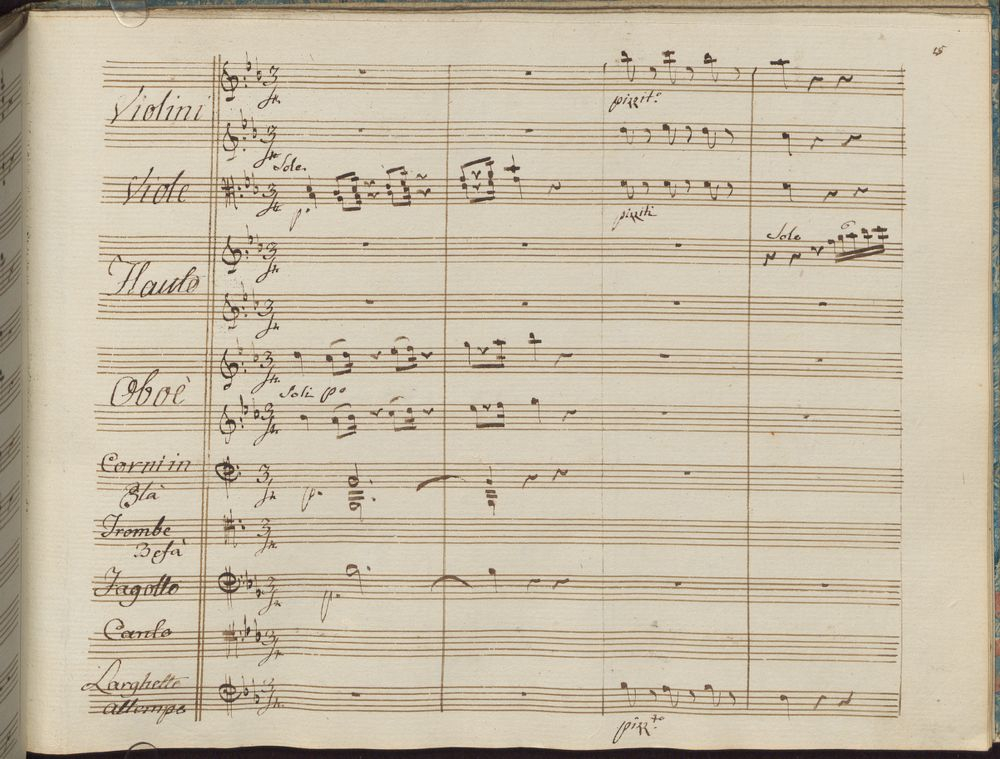 15
Violini
pizzit.º
Sole.
Viole
p.º
pizziti
Sole
6
Flauto
Oboè
Soli pº
Corni in
p.
Trombe
Befà
Fagotto
p.
Canto
Larghetto
pizz.to